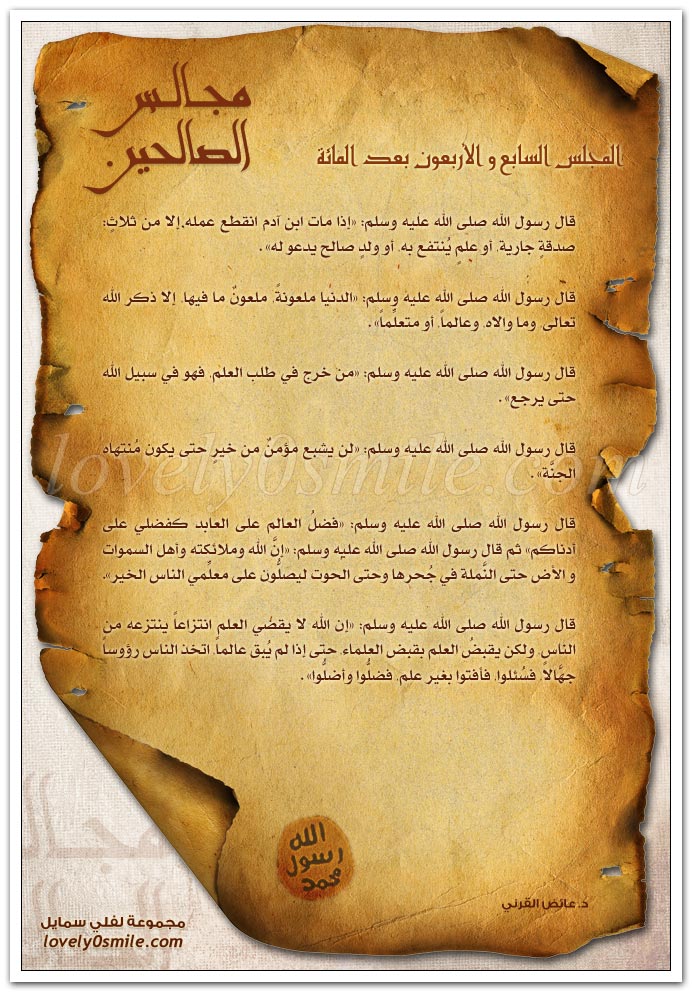 مجالس
الصالحين
المجلس السابع و الأربعون بعد المائة
قال رسول الله صلى الله عليه وسلم: «إذا مات ابن آدم انقطع عمله، إلا من ثلاثٍ:
صدقةٍ جارية، أو علمٍ يُنتفع به، أو ولدٍ صالح يدعو له».
قال رسول الله صلى الله عليه وسلم: «الدنيا ملعونةً، ملعونٌ ما فيها، إلا ذكر الله
تعالى، وما والاه، وعالماً، أو متعلِّماً».
قال رسول الله صلى الله عليه وسلم: «من خرج في طلب العلم، فهو في سبيل الله
حتى يرجع».
قال رسول الله صلى الله عليه وسلم: «لن يشبع مؤمنٌ من خيرٍ حتى يكون مُنتهاه
الجنَّة».
lovely0smile.com
قال رسول الله صلى الله عليه وسلم: «فضلُ العالم على العابد كفضلي على
أدناكم» ثم قال رسول الله صلى الله عليه وسلم: «إنَّ الله وملائكته وأهل السموات
و الأض حتى النَّملة في جُحرها وحتى الحوت ليصلُّون على معلِّمي الناس الخير».
قال رسول الله صلى الله عليه وسلم: «إن الله لا يقضُي العلم انتزاعاً ينتزعه من
الناس، ولكن يقبضُ العلم بقبض العلماء، حتى إذا لم يُبق عالما، اتخذ الناس رؤوساً
جهَّالاً، فسُئلوا، فأفتوا بغير علم، فضلُّوا وأضلُّوا».
الله
رسول
محمد
د.عائض القرني
مجموعة لفلي سمايل
lovely0smile.com